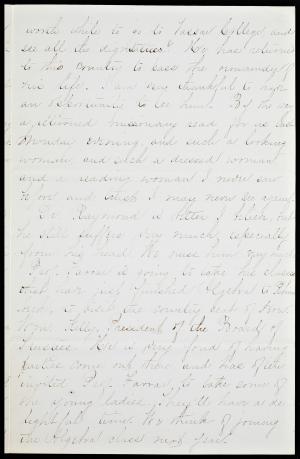 worth while to go to Vassar College and
see all the dignitaries." He has returned
to this country to pass the remainder of
his life. I am very thankful to have
an opportunity to see him. By the way
a returned missionary read for us last
Monday evening, and such a looking
woman, and such a dressed woman
and a reading woman I never saw
before and which I may never see again.
Dr. Raymond is better I believe, but
he still suffers very much, especially
from his head. We miss him very much.
Prof. Farrar is going to take his classes
that have just finished Algebra to
to visit the country seat of Hon.
Wm. Kelly, President of the Board of
Trustees. He is very fond of having
parties come out there and has often
invited Prof. Farrar, to take some of
the young ladies. They'll have a de-
lightful time. We think of joining
the Algebra class next year.